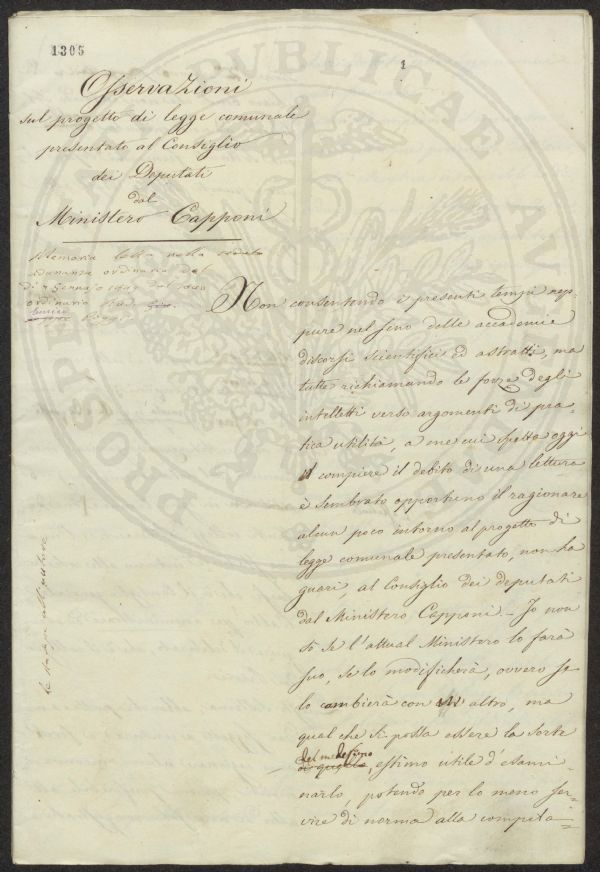 1305
1
Osservazioni
sul progetto di legge comunale
presentato al Consiglio
dei Deputati
dal
Ministero Capponi
Memoria letta nella
adunanza ordinaria del
di 7 Gennajo 1849 dal socio
ordinario
Non consentendo i presenti tempi nep-
pure nel seno delle accademie
discorsi scientifici ed astratti, ma
tutte richiamando le forze degli
intelletti verso argomenti di pra-
tica utilità, a me cui spetta oggi
il compiere il debito di una lettura
è sembrato opportuno il ragionare
alcun poco intorno al progetto di
legge comunale presentato, non ha
guari, al Consiglio dei deputati
dal Ministero Capponi. – Io non
so se l'attual Ministero lo farà
suo, se lo modificherà, ovvero se
lo cambierà con un altro, ma
qual che si possa essere la sorte
del medesimo
di quello, estimo utile d'esami-
narlo, potendo per lo meno ser-
vire di norma alla compila-
PUBLICAE